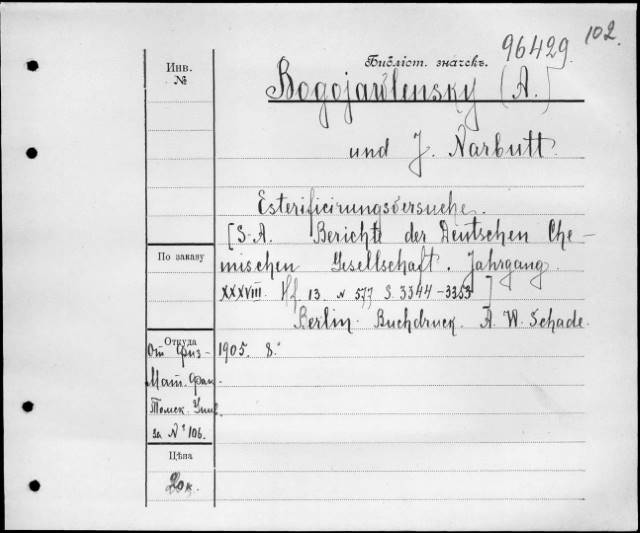 102.
96429
Библіот. значекъ.
Инв.
№
Bogojawlensky (A.)
und J. Narbutt.
Esterificirungsversuche.
[S.-A. Berichte der Deutschen Che-
mischen Gesellschaft. Jahrgang
XXXVIII. Hf. 13. N 577 S. 3344-3353]
Berlin. Buchdruck. A. W. Schade.
1905. 8°
По заказу
Откуда
От физ-
Мат. фак.
Томск. Унив.
за № 106.
Цѣна
20 к.